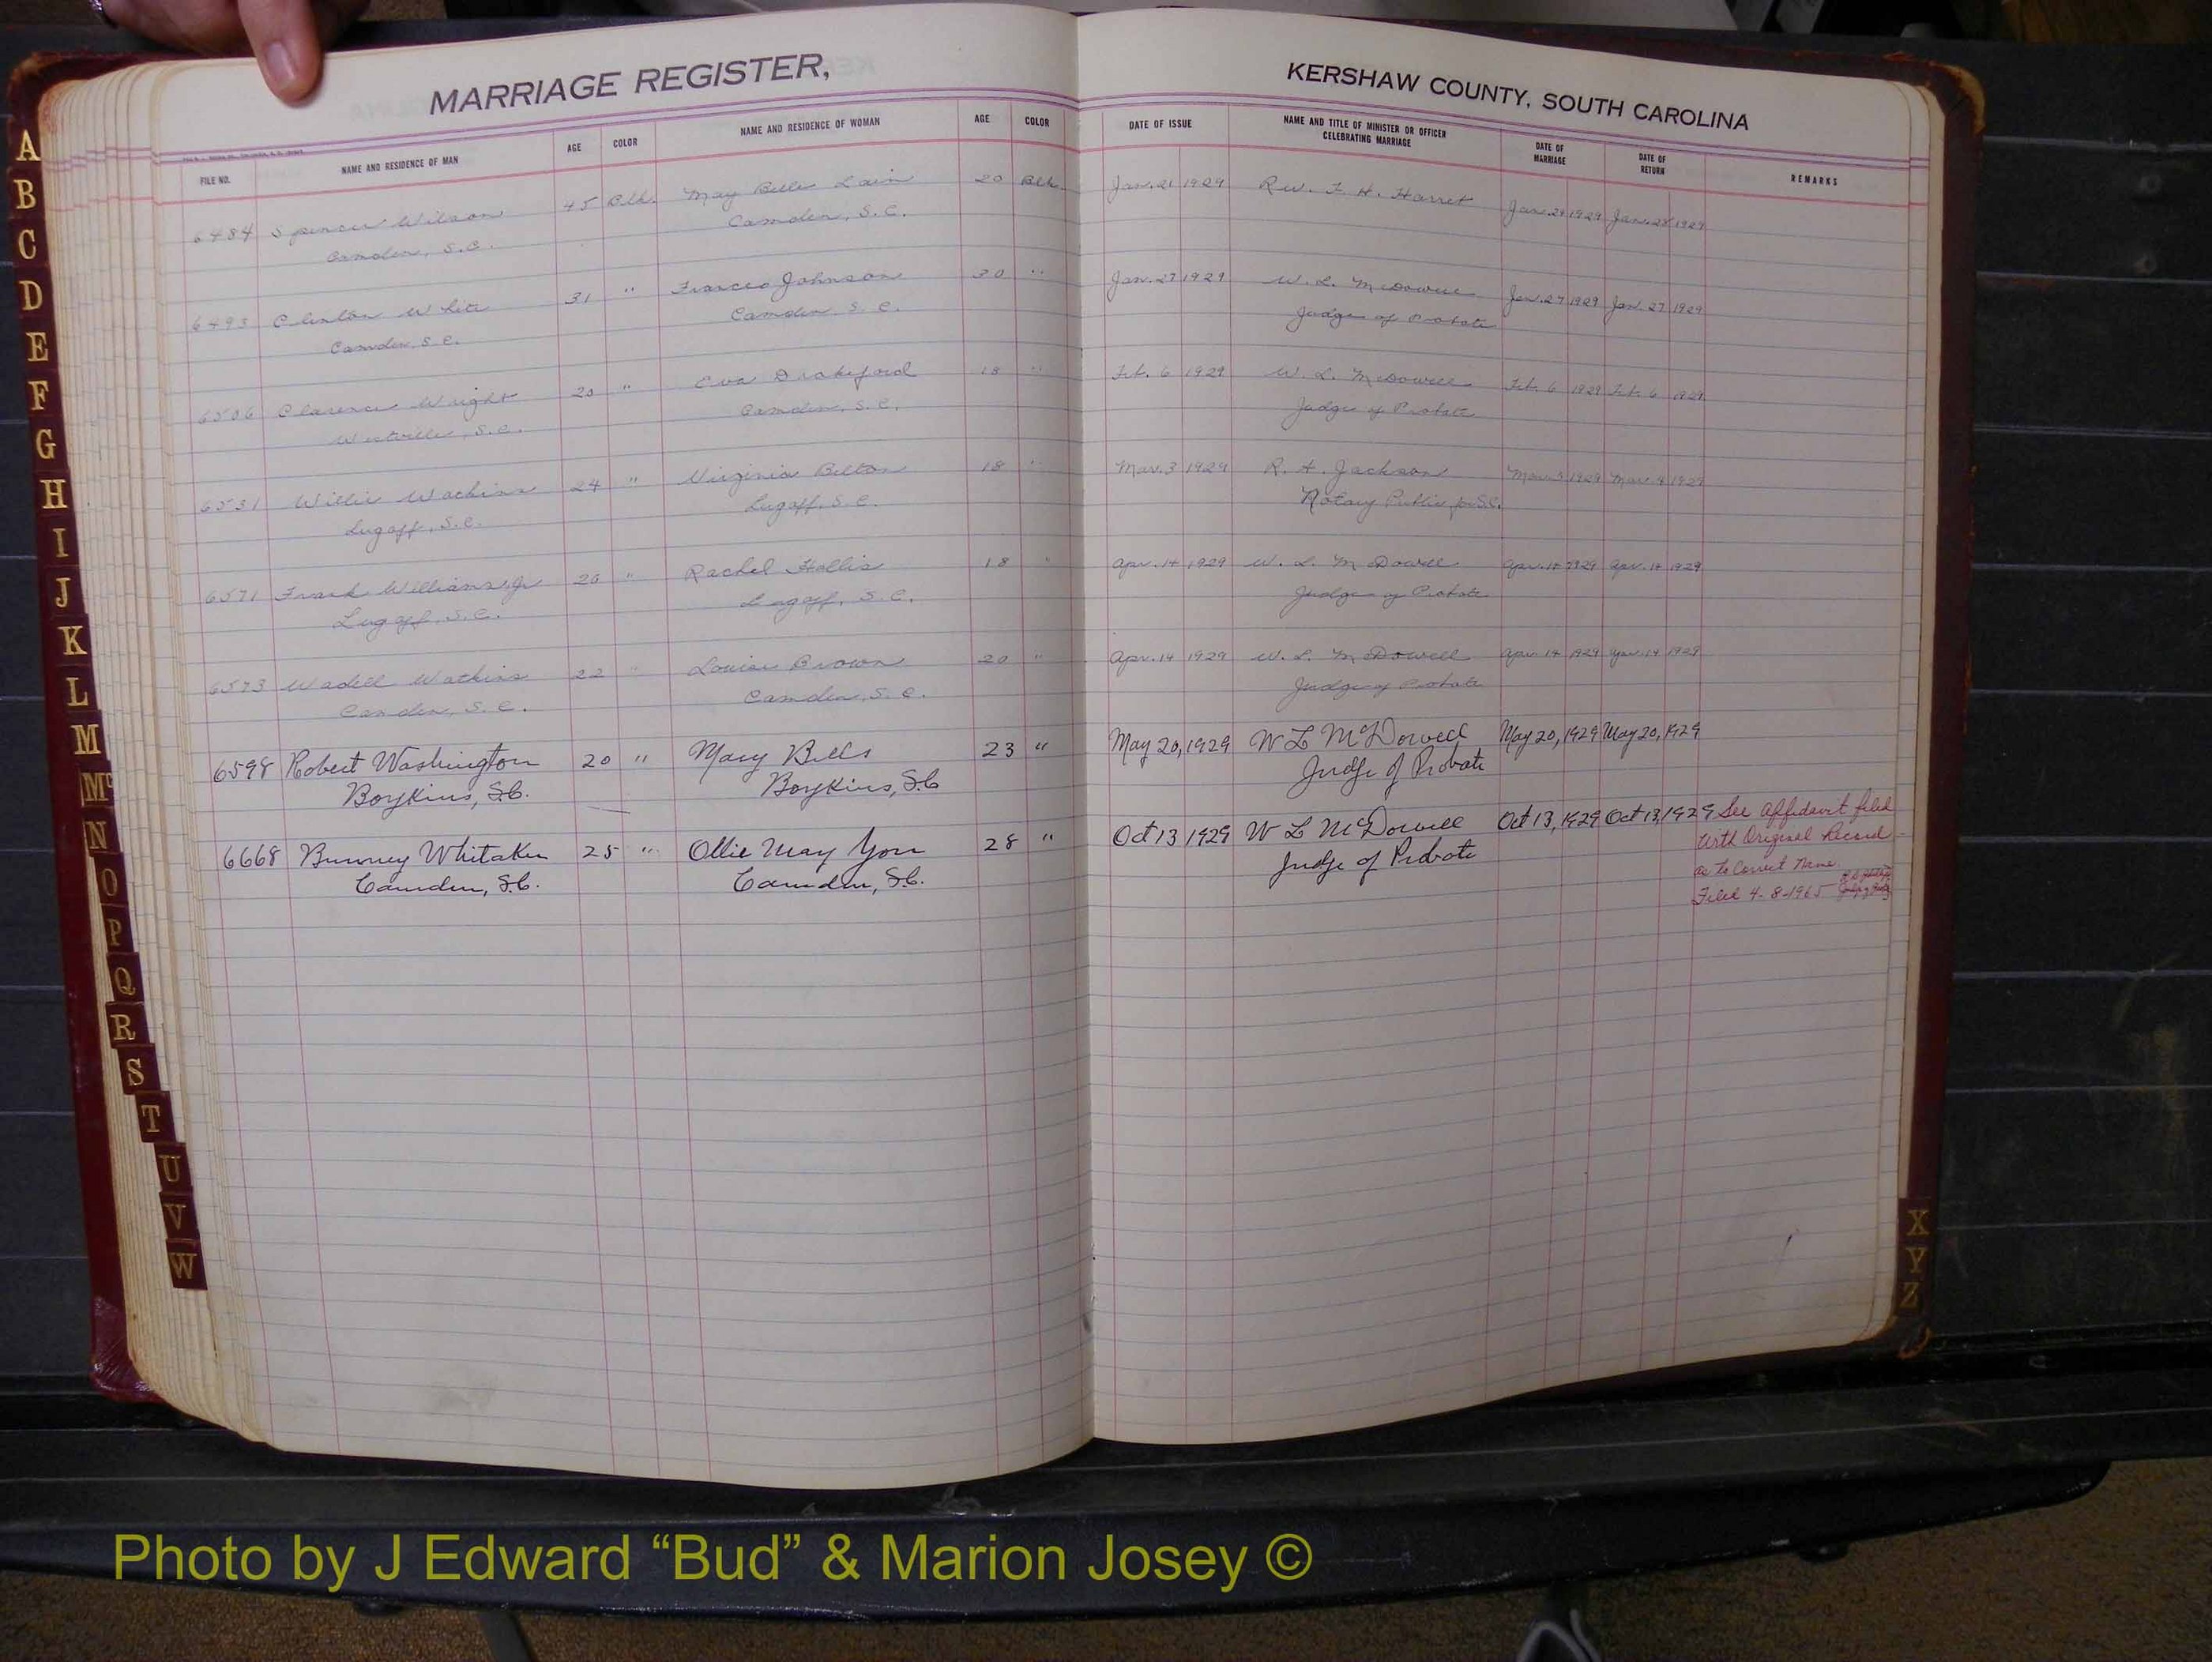 MARRIAGE REGISTER, KERSHAW COUNTY, SOUTH CAROLINA
FILE NO. NAME AND RESIDENCE OF MAN AGE COLOR NAME AND RESIDENCE OF WOMAN AGE COLOR DATE OF ISSUE NAME AND TITLE OF MINISTER OR OFFICER CELEBRATING MARRIAGE DATE OF MARRIAGE DATE OF RETURN REMARKS
6484 Spencer Wilson 45 Blk. May Belle Lain 20 Blk. Jan. 21 1929 Rev. F. H. Harret Jan. 24 1929 Jan. 28 1929
Camden, S.C. Camden, S.C.
6493 Clinton White 31 " Frances Johnson 20 " Jan. 27 1929 W. L. McDowell Jan. 27 1929 Jan. 27 1929
Camden, S.C. Camden, S.C. Judge of Probate
6506 Clarence Wright " Eva Drakeford 18 " Feb. 6 1929 W. L. McDowell Feb. 6 1929 Feb. 6 1929
Westville, S.C. Camden, S.C. Judge of Probate
6531 Willie Watkins 24 " Virginia Belton 18 " Mar. 3 1929 R. H. Jackson Mar. 3 1929 Mar. 9 1929
Lugoff, S.C. Lugoff, S.C. Notary Public S.C.
6571 Frank Williams Jr 26 " Rachel Hollis 18 " Apr. 14 1929 W. L. McDowell Apr. 14 1929 Apr. 14 1929
Lugoff, S.C. Lugoff, S.C. Judge of Probate
6573 Wadell Watkins 22 " Louise Brown 20 " Apr. 14 1929 W. L. McDowell Apr. 14 1929 Apr. 14 1929
Camden, S.C. Camden, S.C. Judge of Probate
6598 Robert Washington 20 " Mary Bells 23 " May 20, 1929 W L McDowell May 20, 1929 May 20, 1929
Boykins, S.C. Boykins, S.C Judge of Probate
6668 Bunney Whitaker 25 " Ollie May You 28 " Oct 13 1929 W L McDowell Oct 13, 1929 Oct 13, 1929 See Affidavit filed
Camden, S.C. Camden, S.C. Judge of Probate With Original Record
as to Correct Name
Filed 4-8-1965
A
B
C
D
E
F
G
H
I
J
K
L
M
Mc
N
O
P
Q
R
S
T
U
V
W
X
Y
Z
Photo by J Edward “Bud” & Marion Josey ©